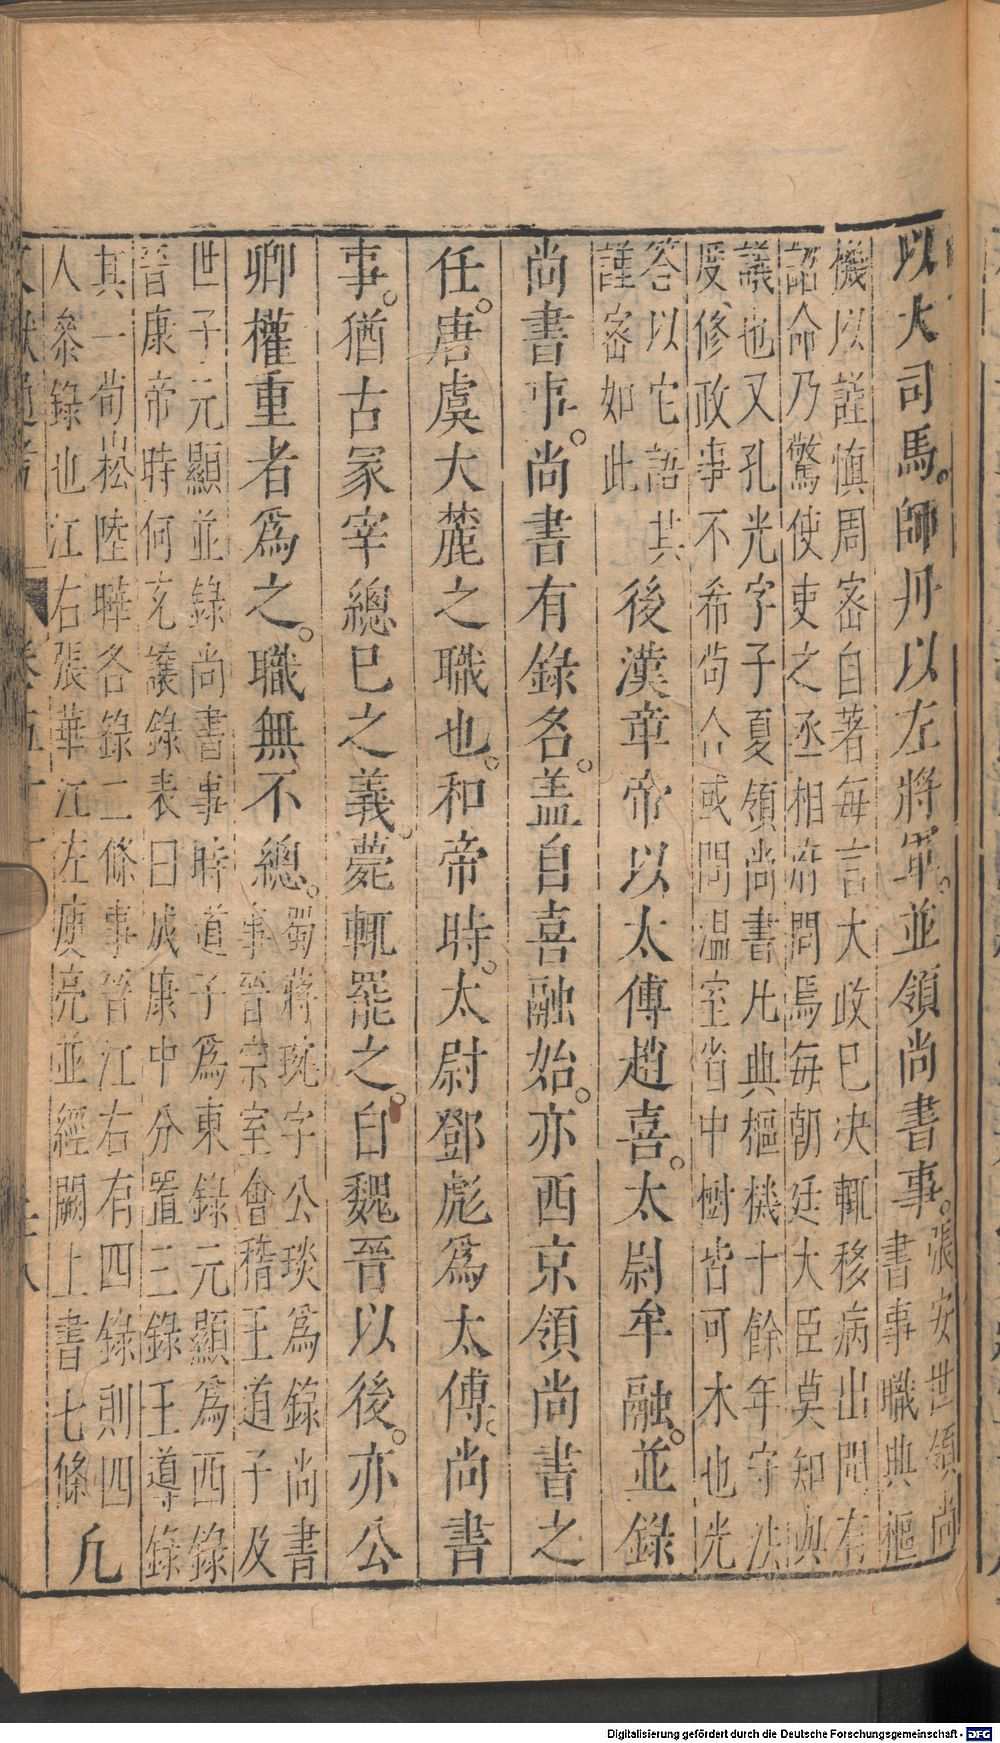 以大司馬。師丹以左將軍。並領尚書事。張安世領尚
書事職典樞
機以謹慎周密自著每言大政已决輒移病出聞有
詔命乃驚使吏之丞相府問焉每朝廷大臣莫知與
議也又孔光字子夏領尚書凡典樞機十餘年守法
度修政事不希苟合或問溫室省中樹皆何木也光
答以它語其
謹密如此
後漢章帝以太傅趙喜。太尉牟融。並錄
尚書事。尚書有錄名。盖自喜融始。亦西京領尚書之
任。唐虞大麓之職也。和帝時。太尉鄧彪爲太傅。尚書
事。猶古冢宰總已之義。薨輒罷之。自魏晉以後。亦公
卿權重者爲之。職無不總。蜀蔣琬字公琰爲錄尚書
事晉宗室會稽王道子及
世子元顯並錄尚書事時道子爲東錄元顯爲西錄
晉康帝時何充讓錄表曰咸康中分置三錄王導錄
其一荀崧陸曄各錄二條事晉江右有四錄則四
人叅錄也江右張華江左庾亮並經關上書七條
凡
Digitalisierung gefördert durch die Deutsche Forschungsgemeinschaft - DFG